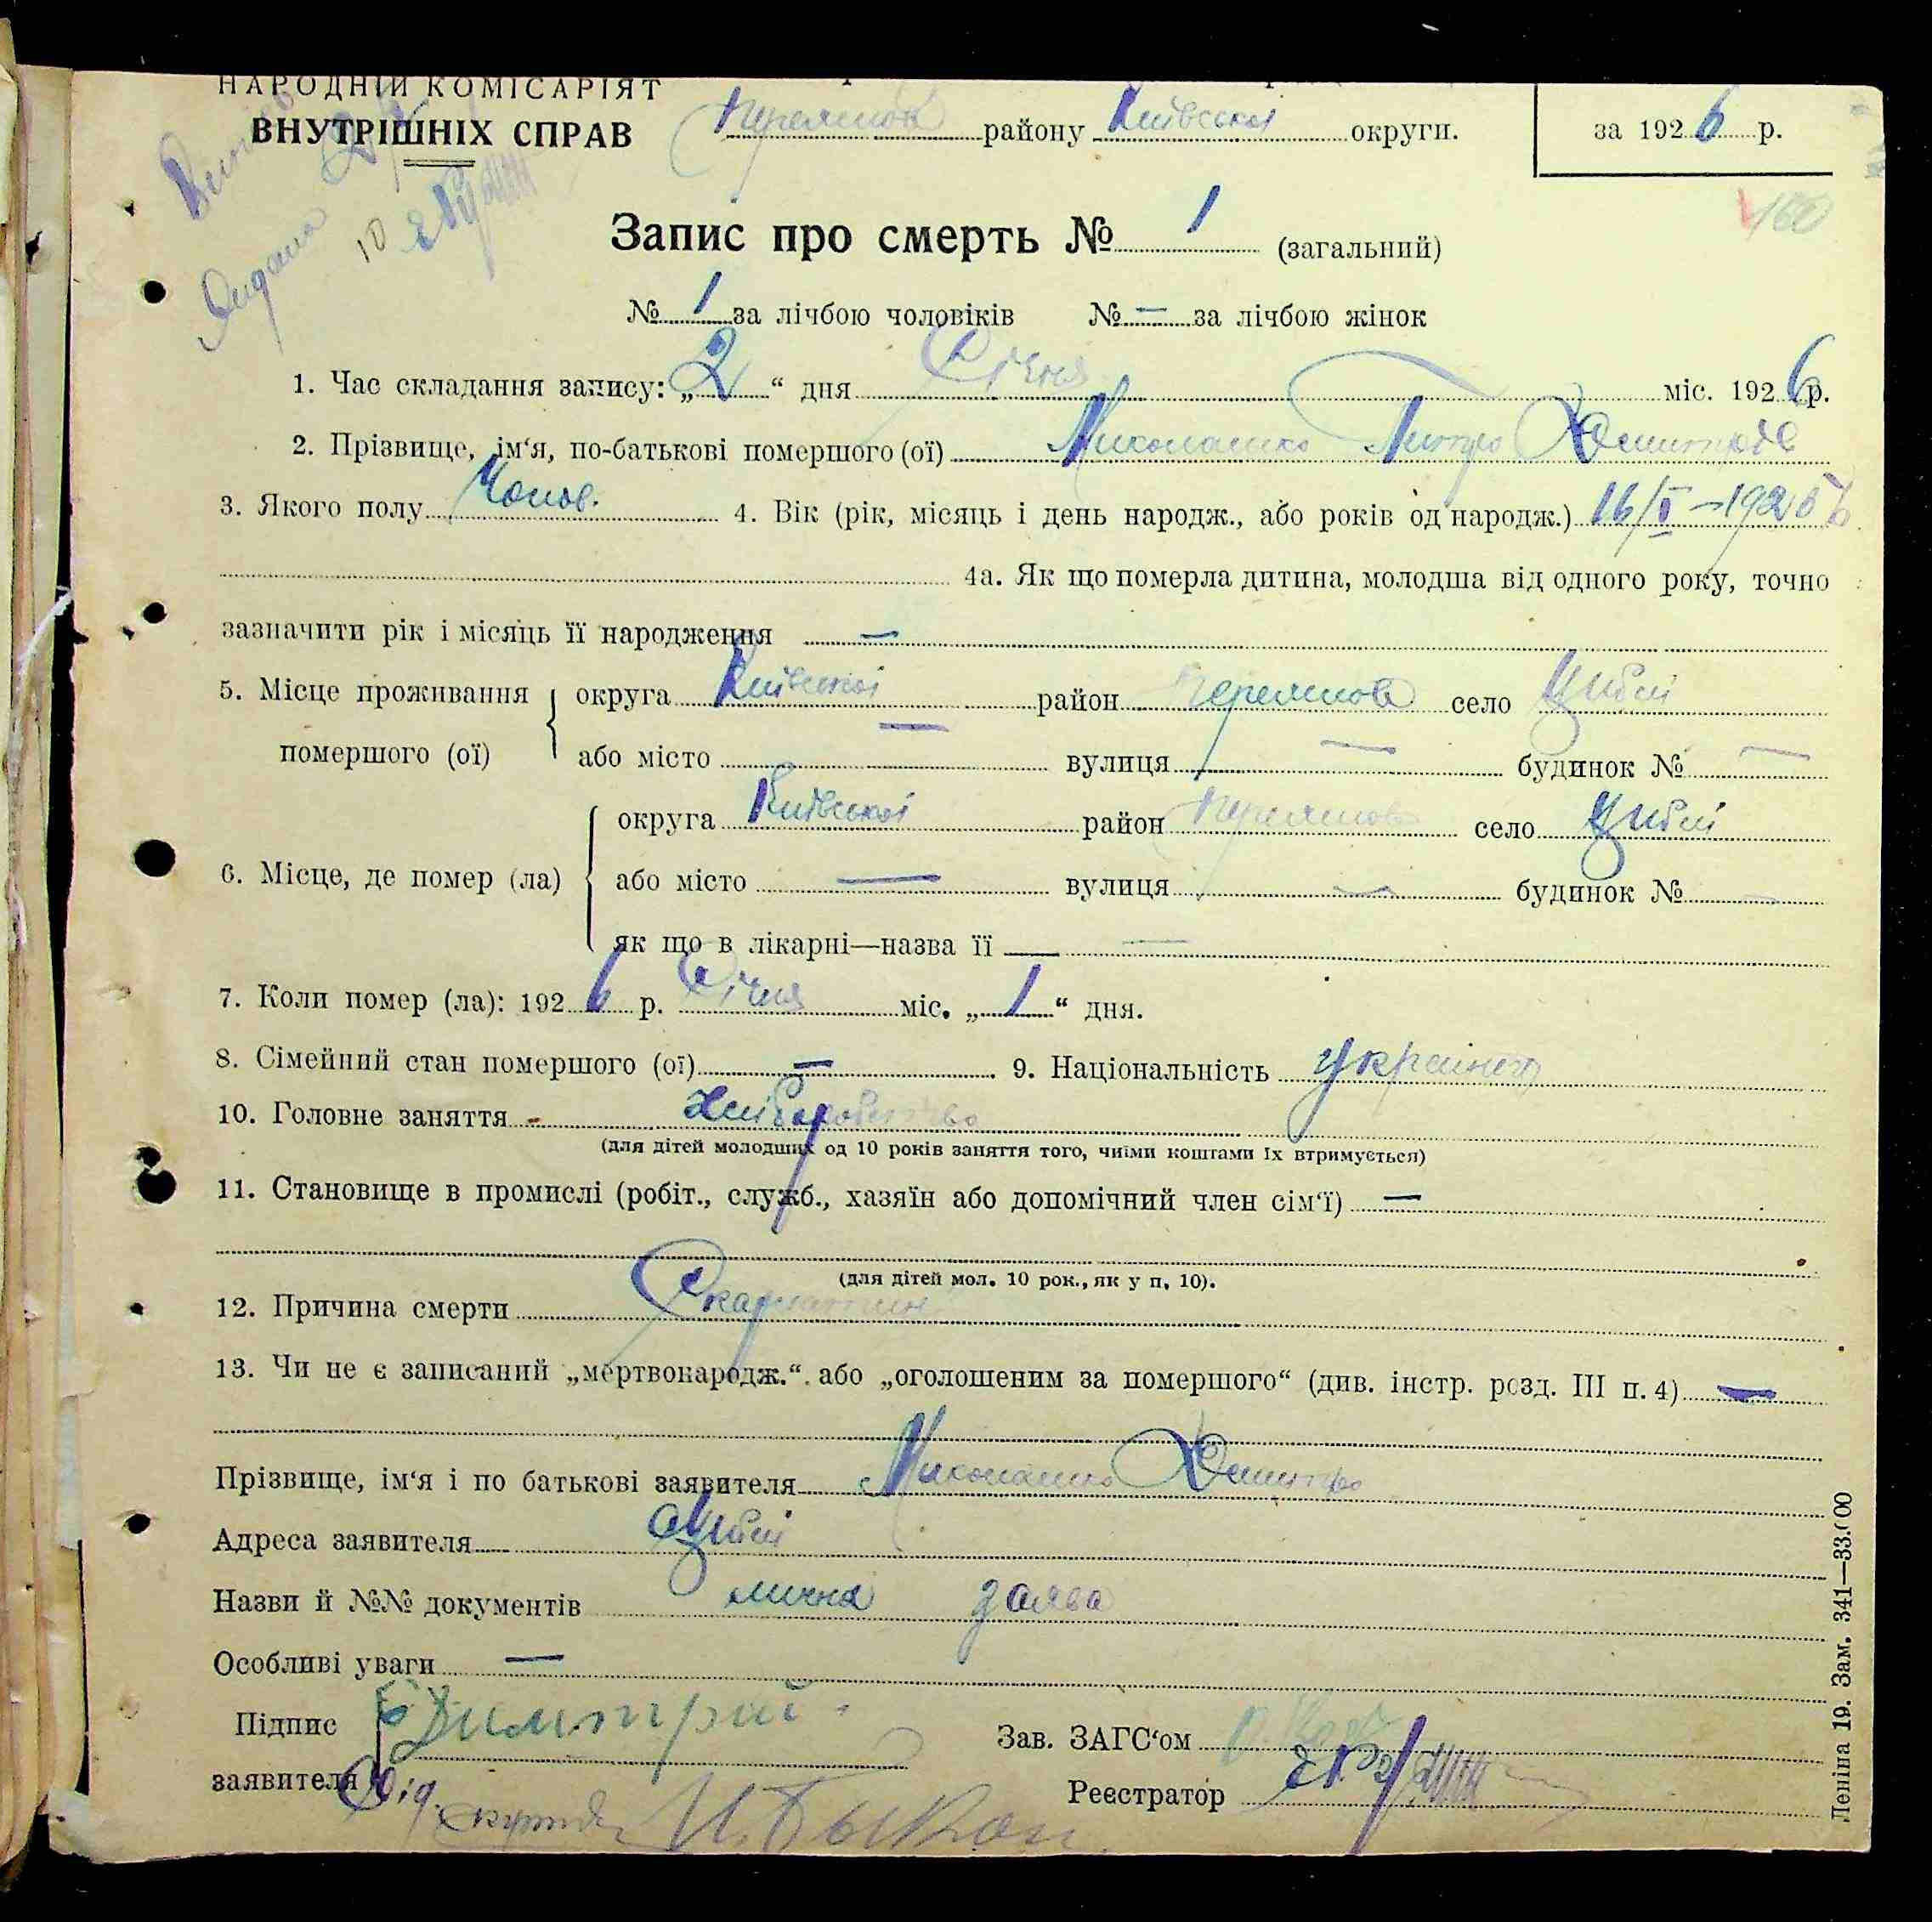 НАРОДНІЙ КОМІСАРІЯТ
ВНУТРІШНІХ СПРАВ
району Київської округи.
за 1926 р.
160
Запис про смерть № 1 (загальний)
№ 1 за лічбою чоловіків № — за лічбою жінок
1. Час складання запису: „2“ дня Січня міс. 1926 р.
2. Прізвище, ім‘я, по-батькові помершого (ої) Миколаенко Петро
3. Якого полу Чолов. 4. Вік (рік, місяць і день народж., або років од народж.) 16/
4а. Як що померла дитина, молодша від одного року, точно
зазначити рік і місяць її народження —
5. Місце проживання помершого (ої) округа Київської район село Циблі
або місто — вулиця — будинок № —
6. Місце, де помер (ла) округа Київської район село Циблі
або місто — вулиця — будинок № —
як що в лікарні—назва її —
7. Коли помер (ла): 1926 р. Січня міс. „1“ дня.
8. Сімейний стан помершого (ої) — 9. Національність українец
10. Головне заняття - Хліборобство
(для дітей молодших од 10 років заняття того, чиїми коштами їх втримується)
11. Становище в промислі (робіт., служб., хазяїн або допомічний член сім‘ї) —
(для дітей мол. 10 рок., як у п. 10).
12. Причина смерти Скарлатин
13. Чи не є записаний „мертвонародж.“ або „оголошеним за помершого“ (див. інстр. розд. III п. 4) —
Прізвище, ім‘я і по батькові заявителя Миколаенко Дмитро
Адреса заявителя Циблі
Назви й №№ документів лична заява
Особливі уваги —
Підпис заявителя
Зав. ЗАГС‘ом
Реєстратор
Леніна 19. Зам. 341—33.000